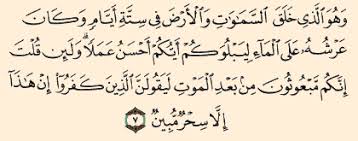 وَهُوَ ٱلَّذِى خَلَقَ ٱلسَّمَٰوَٰتِ وَٱلْأَرْضَ فِى سِتَّةِ أَيَّامٍ وَكَانَ
عَرْشُهُۥ عَلَى ٱلْمَآءِ لِيَبْلُوَكُمْ أَيُّكُمْ أَحْسَنُ عَمَلًا ۗ وَلَئِن قُلْتَ
إِنَّكُم مَّبْعُوثُونَ مِنۢ بَعْدِ ٱلْمَوْتِ لَيَقُولَنَّ ٱلَّذِينَ كَفَرُوٓا۟ إِنْ هَٰذَآ
إِلَّا سِحْرٌ مُّبِينٌ ٧